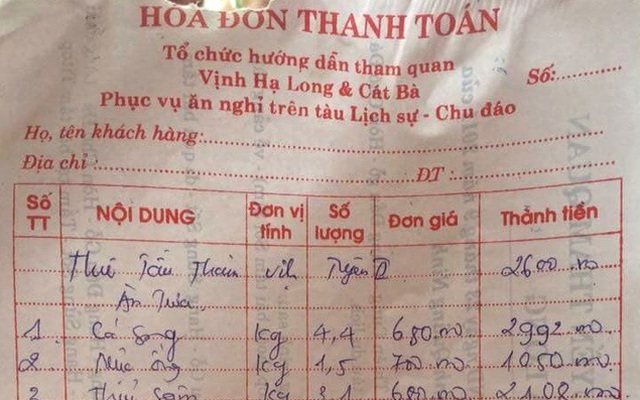 HÓA ĐƠN THANH TOÁN
Tổ chức hướng dẫn tham quan
Vịnh Hạ Long & Cát Bà
Số:
Phục vụ ăn nghỉ trên tàu Lịch sự - Chu đáo
Họ, tên khách hàng:
Địa chỉ : ĐT :
Số TT NỘI DUNG Đơn vị tính Số lượng Đơn giá Thành tiền
Thuê Tàu Thăm Vịnh Tuyến II 2600.000
Ăn Trưa
1 Cá Song kg 4,4 680.000 2992.000
2 Mực ống kg 1,5 700.000 1050.000
3 kg 3,1 680.000 2108.000